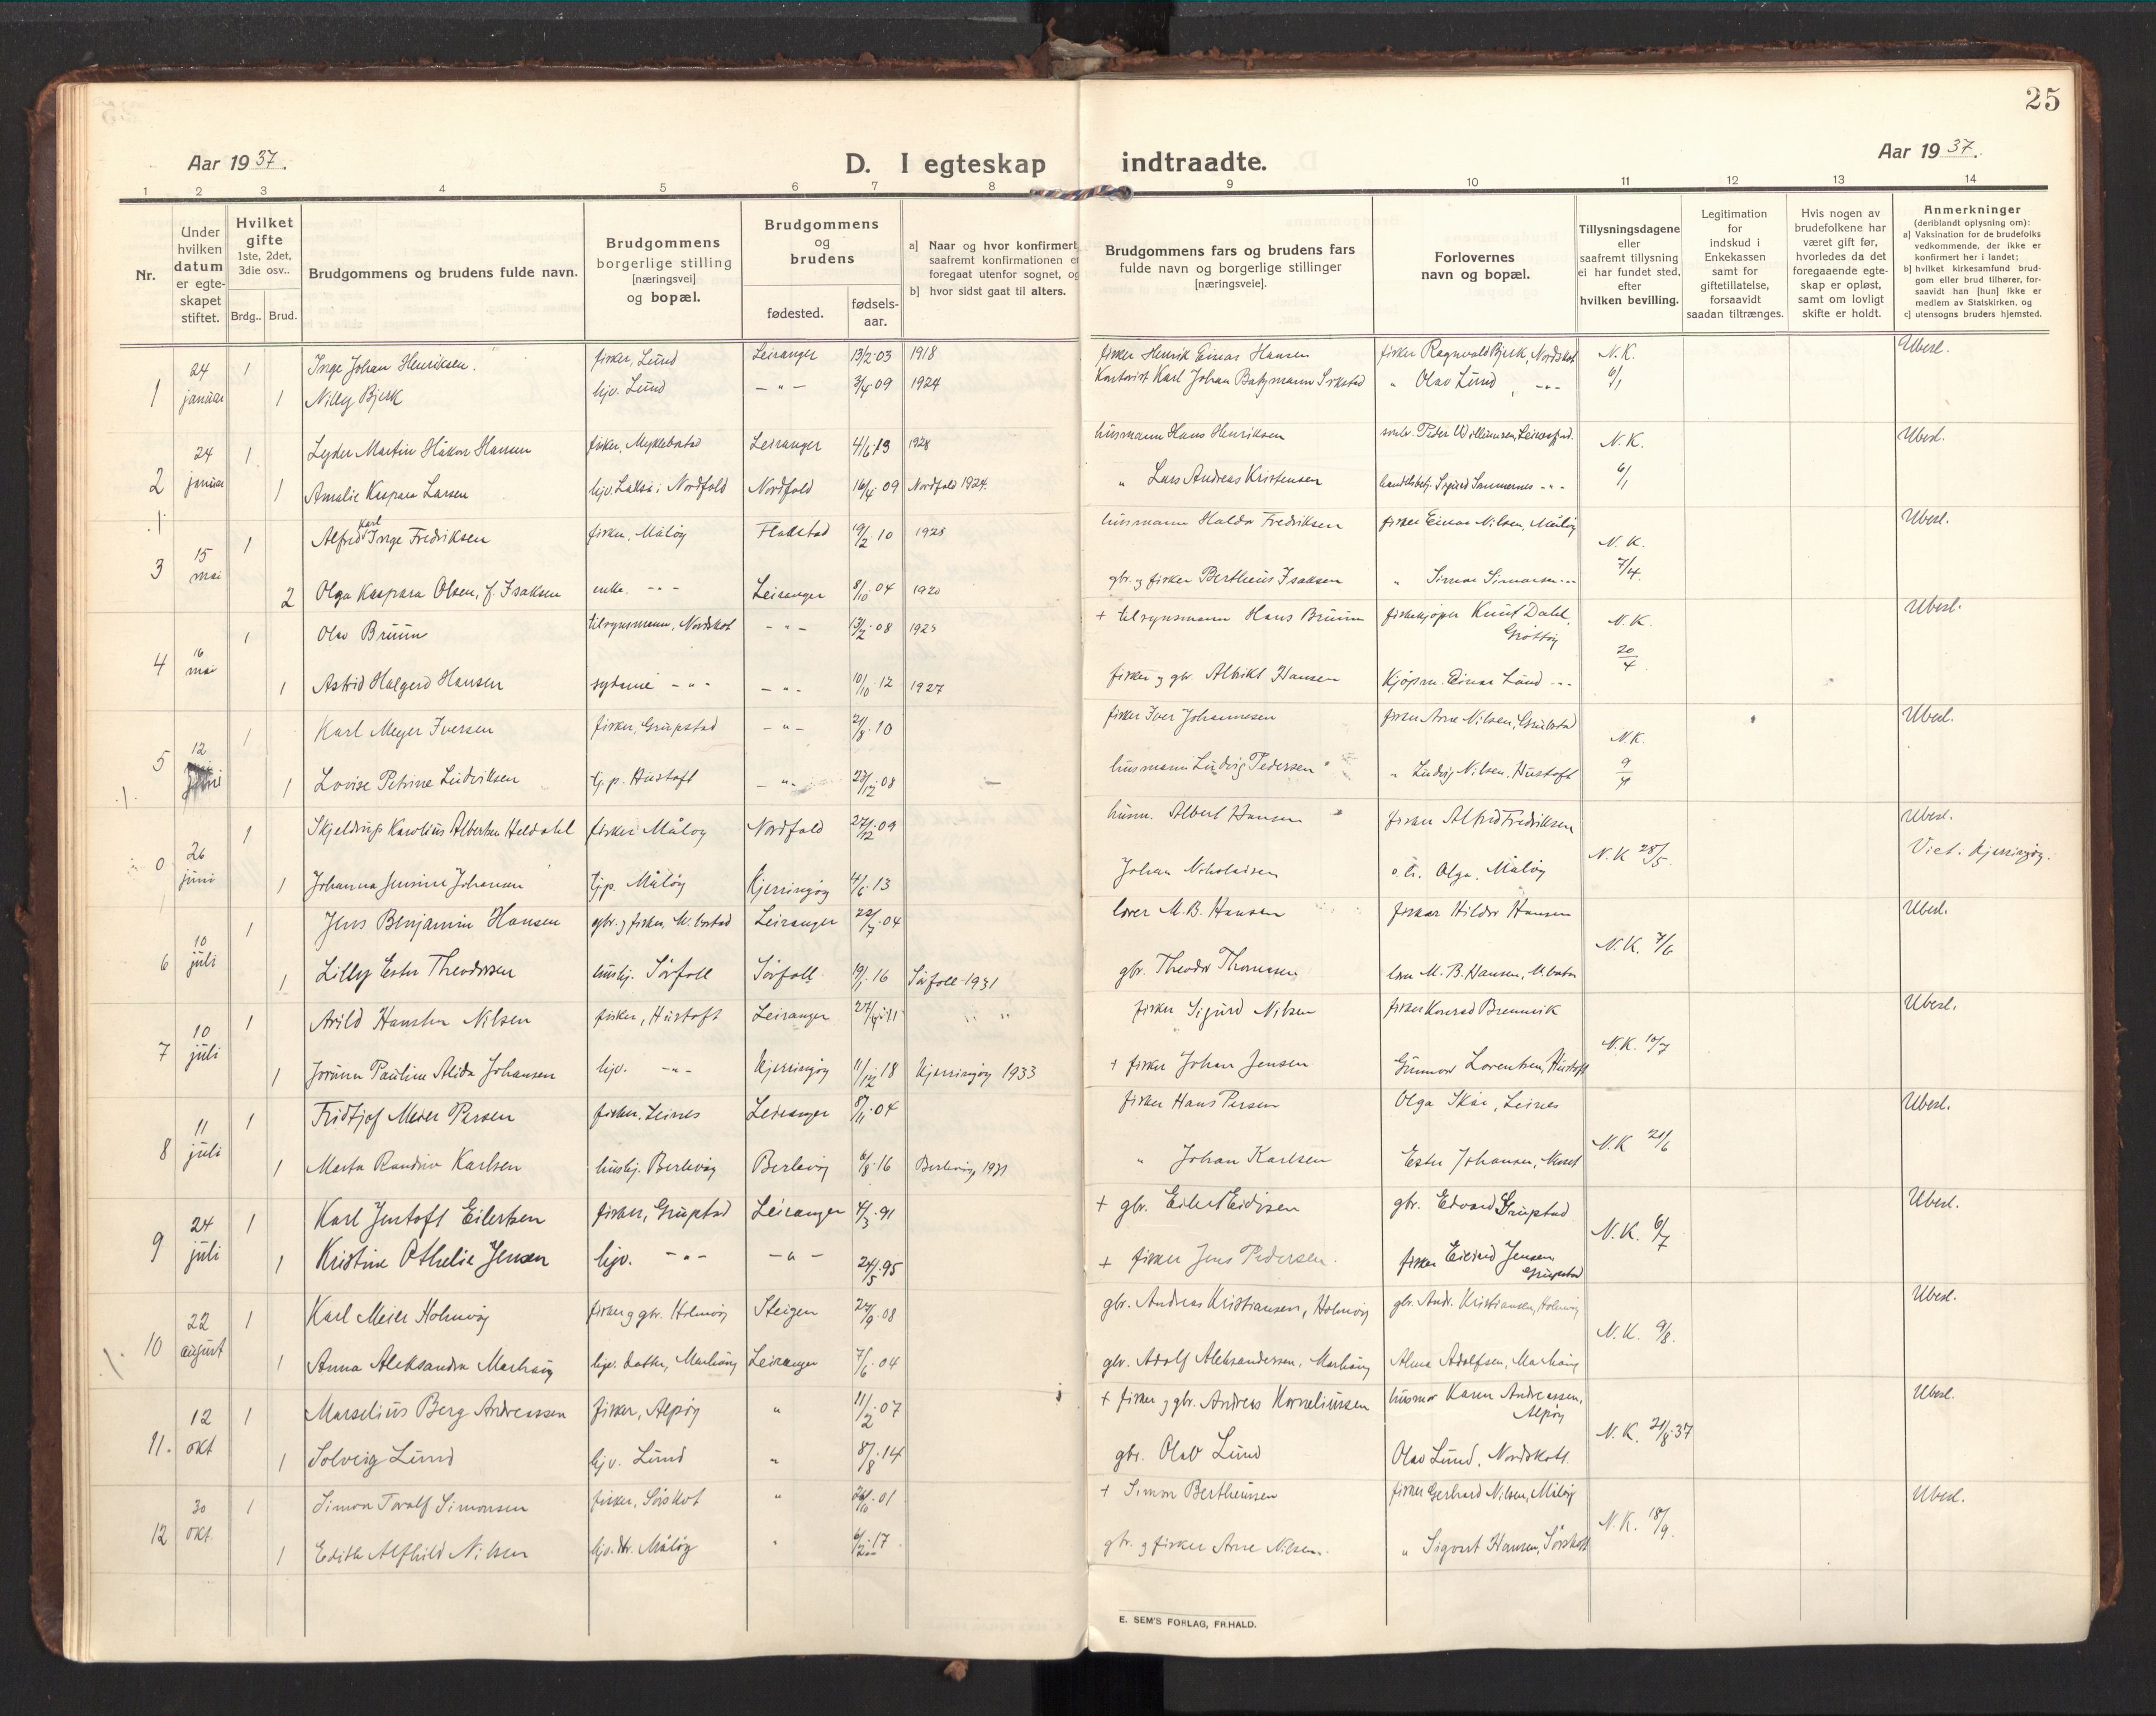 25
Aar 1937.
D. I egteskap indtraadte.
Aar 1937.
1 2 3 4 5 6 7 8 9 10 11 12 13 14
Nr.
Under hvilken datum er egteskapet stiftet.
Hvilket gifte 1ste, 2det, 3die osv..
Brdg.. Brud.
Brudgommens og brudens fulde navn.
Brudgommens borgerlige stilling [næringsvei] og bopæl.
Brudgommens og brudens
fødested. fødselsaar.
a] Naar og hvor konfirmert, saafremt konfirmationen er foregaat utenfor sognet, og
b] hvor sidst gaat til alters.
Brudgommens fars og brudens fars fulde navn og borgerlige stillinger [næringsveie].
Forlovernes navn og bopæl.
Tillysningsdagene eller saafremt tillysning ei har fundet sted, efter hvilken bevilling.
Legitimation for indskud i Enkekassen samt for giftetillatelse, forsaavidt saadan tiltrænges.
Hvis nogen av brudefolkene har været gift før, hvorledes da det foregaaende egteskap er opløst, samt om lovligt skifte er holdt.
Anmerkninger (deriblandt oplysning om):
a] Vaksination for de brudefolks vedkommende, der ikke er konfirmert her i landet;
b] hvilket kirkesamfund brudgom eller brud tilhører, forsaavidt han [hun] ikke er medlem av Statskirken, og
c] utensogns bruders hjemsted.
1 24 januar 1 Inge Johan Henriksen. fisker, Lund Leiranger 13/2 03 1918 fisker Henrik Einar Hansen fisker Ragnvald Bjerk, Nordskot N.K. 6/1 Ubesl.
1 Nilly Bjerk hjv. Lund -"- 3/4 09 1924 Karl Johan " Olav Lund, -"-
2 24 januar 1 Lyder Martin Håkon Hansen fisker, Myklebostad Leiranger 4/6 13 1928 husmann Hans Henriksen N.K. 6/1 Ubesl.
1 Amalie Kaspara Larsen hjv. Nordfold Nordfold 16/4 09 Nordfold 1924. " Lars Andreas Kristensen
3 15 mai 1 Alfred Karl Inge Fredriksen fisker, Måløy Flakstad 19/2 10 1925 husmann Haldor Fredriksen fisker Einar Nilsen, Måløy N.K. 7/4. Ubesl.
2 Olga Kaspara Olsen, f. Isaksen enke. -"- Leiranger 8/10 04 1920 gbr. og fisker Bertheus Isaksen " Simon Simonsen -"-
4 16 mai 1 Olav Bruun tilsynsmann, Nordskot -"- 13/2 08 1923 + tilsynsmann Hans Bruun fiskekjøper Knut Dahl, Grøtøy N.K. 20/4 Ubesl.
1 Astrid Halgerd Hansen syerske -"- -"- 10/10 12 1927 fisker og gbr. Albrikt Hansen Kjøpm. Einar Lund -"-
5 12 juni 1 Karl Meyer Iversen fisker, Grupstad -"- 10 fisker Iver Johannesen fisker Arne Nilsen, Grupstad N.K. Ubesl.
1 Lovise Petrine Ludviksen tj.p. Hustoft -"- 23/12 08 - husmann Ludvig Pedersen " Ludvig Nilsen, Hustoft
0 26 juni 1 Skjeldrup Karolius Albertsen Heldahl fisker Måløy Nordfold 27/12 09 husm. Albert Hansen fisker Alfred Fredriksen N.K 28/5. Ubesl.
1 Johanna Jensine Johansen tjp. Måløy Kjerringøy 4/6 13 Johan Nikolaisen o.h. Olga, Måløy Viet i Kjerringøy.
6 10 juli 1 Jens Benjamin Hansen gbr. og fisker, M.bostad Leiranger 22/7 04 lærer M.B. Hansen fisker Hildor Hansen N.K. 7/6 Ubesl.
1 Lilly Ester Theodorsen hushj. Sørfold Sørfold 19/1 16 Sørfold 1931 gbr. Theodor Thomassen lærer M.B. Hansen
7 10 juli 1 Arild Hansten Nilsen fisker, Hustoft Leiranger 27/4 11 " " fisker Sigurd Nilsen fisker Konrad Brennvik N.K. 10/7 Ubesl.
1 Jorunn Pauline Alida Johansen hjv. -"- Kjerringøy 11/12 18 Kjerringøy 1933 + fisker Johan Jensen Gunnar Lorentsen, Hustoft
8 11 juli 1 Fridtjof Meier Persen fisker, Leines Leiranger 8/11 04 fisker Hans Persen Olga Skår, Leines N.K 21/6 Ubesl.
1 Marta Randine Karlsen hushj. Berlevåg Berlevåg 6/8 16 Berlevåg 1931 " Johan Karlsen Ester Johansen
9 24 juli 1 Karl Justoft Eilertsen fisker, Grupstad Leiranger 4/3 91 + gbr. Eilert Eidisen gbr. Edvard Grupstad N.K. 6/7 Ubesl.
1 Kristine Othelie Jensen hjv. -"- -"- 24/5 95 + fisker Jens Pedersen. fisker Eilivd Jensen Grupstad
10 22 august 1 Karl Meier Holmvåg fisker og gbr. Holmvåg Steigen 24/9 08 gbr. Andreas Kristiansen, Holmvåg gbr. Andr. Kristiansen, Holmvåg N.K. 9/8. Ubesl.
1 Anna Aleksandra Marhaug hjv. datter, Marhaug Leiranger 7/6 04 gbr. Adolf Aleksandersen, Marhaug Alma Adolfsen, Marhaug
11. 12 okt 1 Marselius Berg Andreassen fisker, Alpøy " 11/2 07 + fisker og gbr. Andreas Korneliussen husmor Karen Andreassen, Alpøy N.K. 21/8 37 Ubesl.
1 Solveig Lund hjv. Lund " 8/8 14 gbr. Olav Lund Olav Lund, Nordskott.
12 30 okt. 1 Simon Torolf Simonsen fisker, Sørskot " 26/10 01 + Simon Bertheussen fisker Gerhard Nilsen, Måløy N.K. 18/9. Ubesl.
1 Edith Alfhild Nilsen hjv. dtr. Måløy " 17 gbr. og fisker Arne Nilsen. " Sigvart Hansen, Sørskott
E. SEM'S FORLAG, FR.HALD.